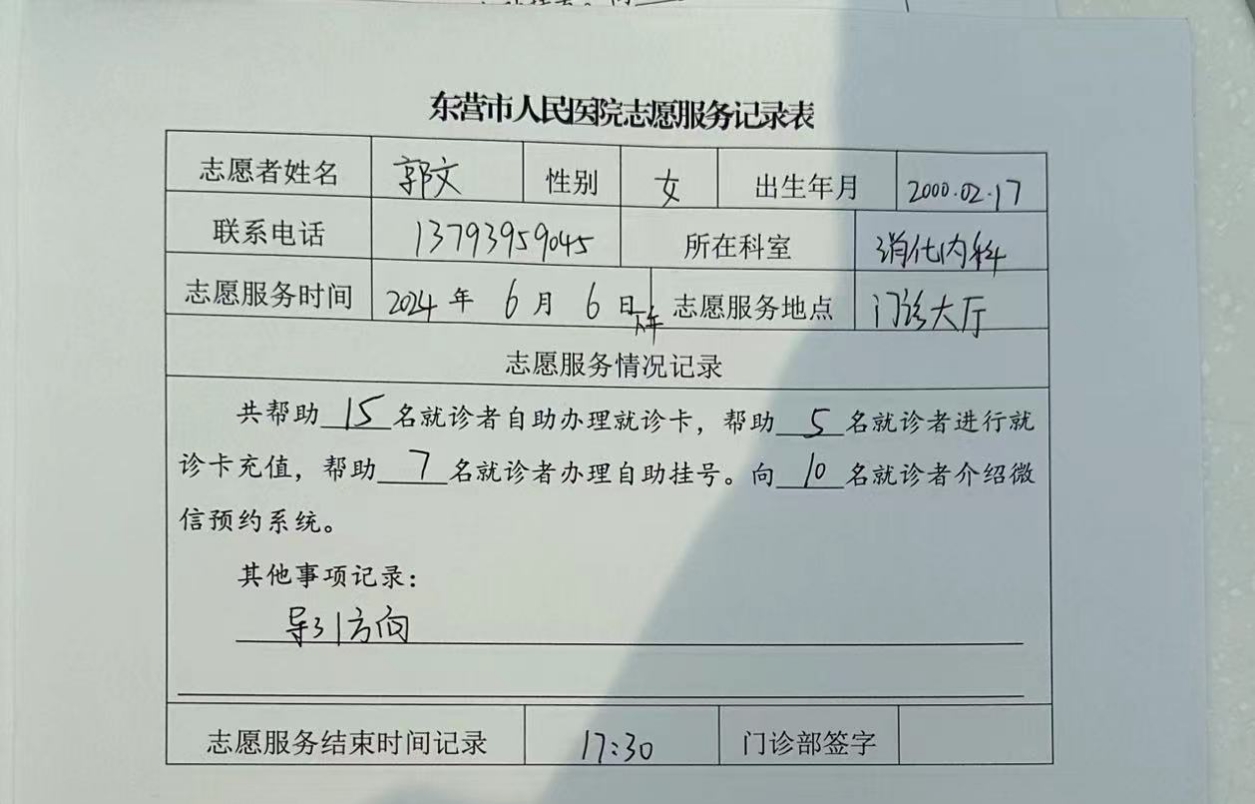 东营市人民医院志愿服务记录表
志愿者姓名 郭文 性别 女 出生年月 2000.02.17
联系电话 13793959045 所在科室 消化内科
志愿服务时间 2024年 6月 6日下午 志愿服务地点 门诊大厅
志愿服务情况记录
共帮助15名就诊者自助办理就诊卡，帮助5名就诊者进行就
诊卡充值，帮助7名就诊者办理自助挂号。向10名就诊者介绍微
信预约系统。
其他事项记录：
导引方向
志愿服务结束时间记录 17:30 门诊部签字